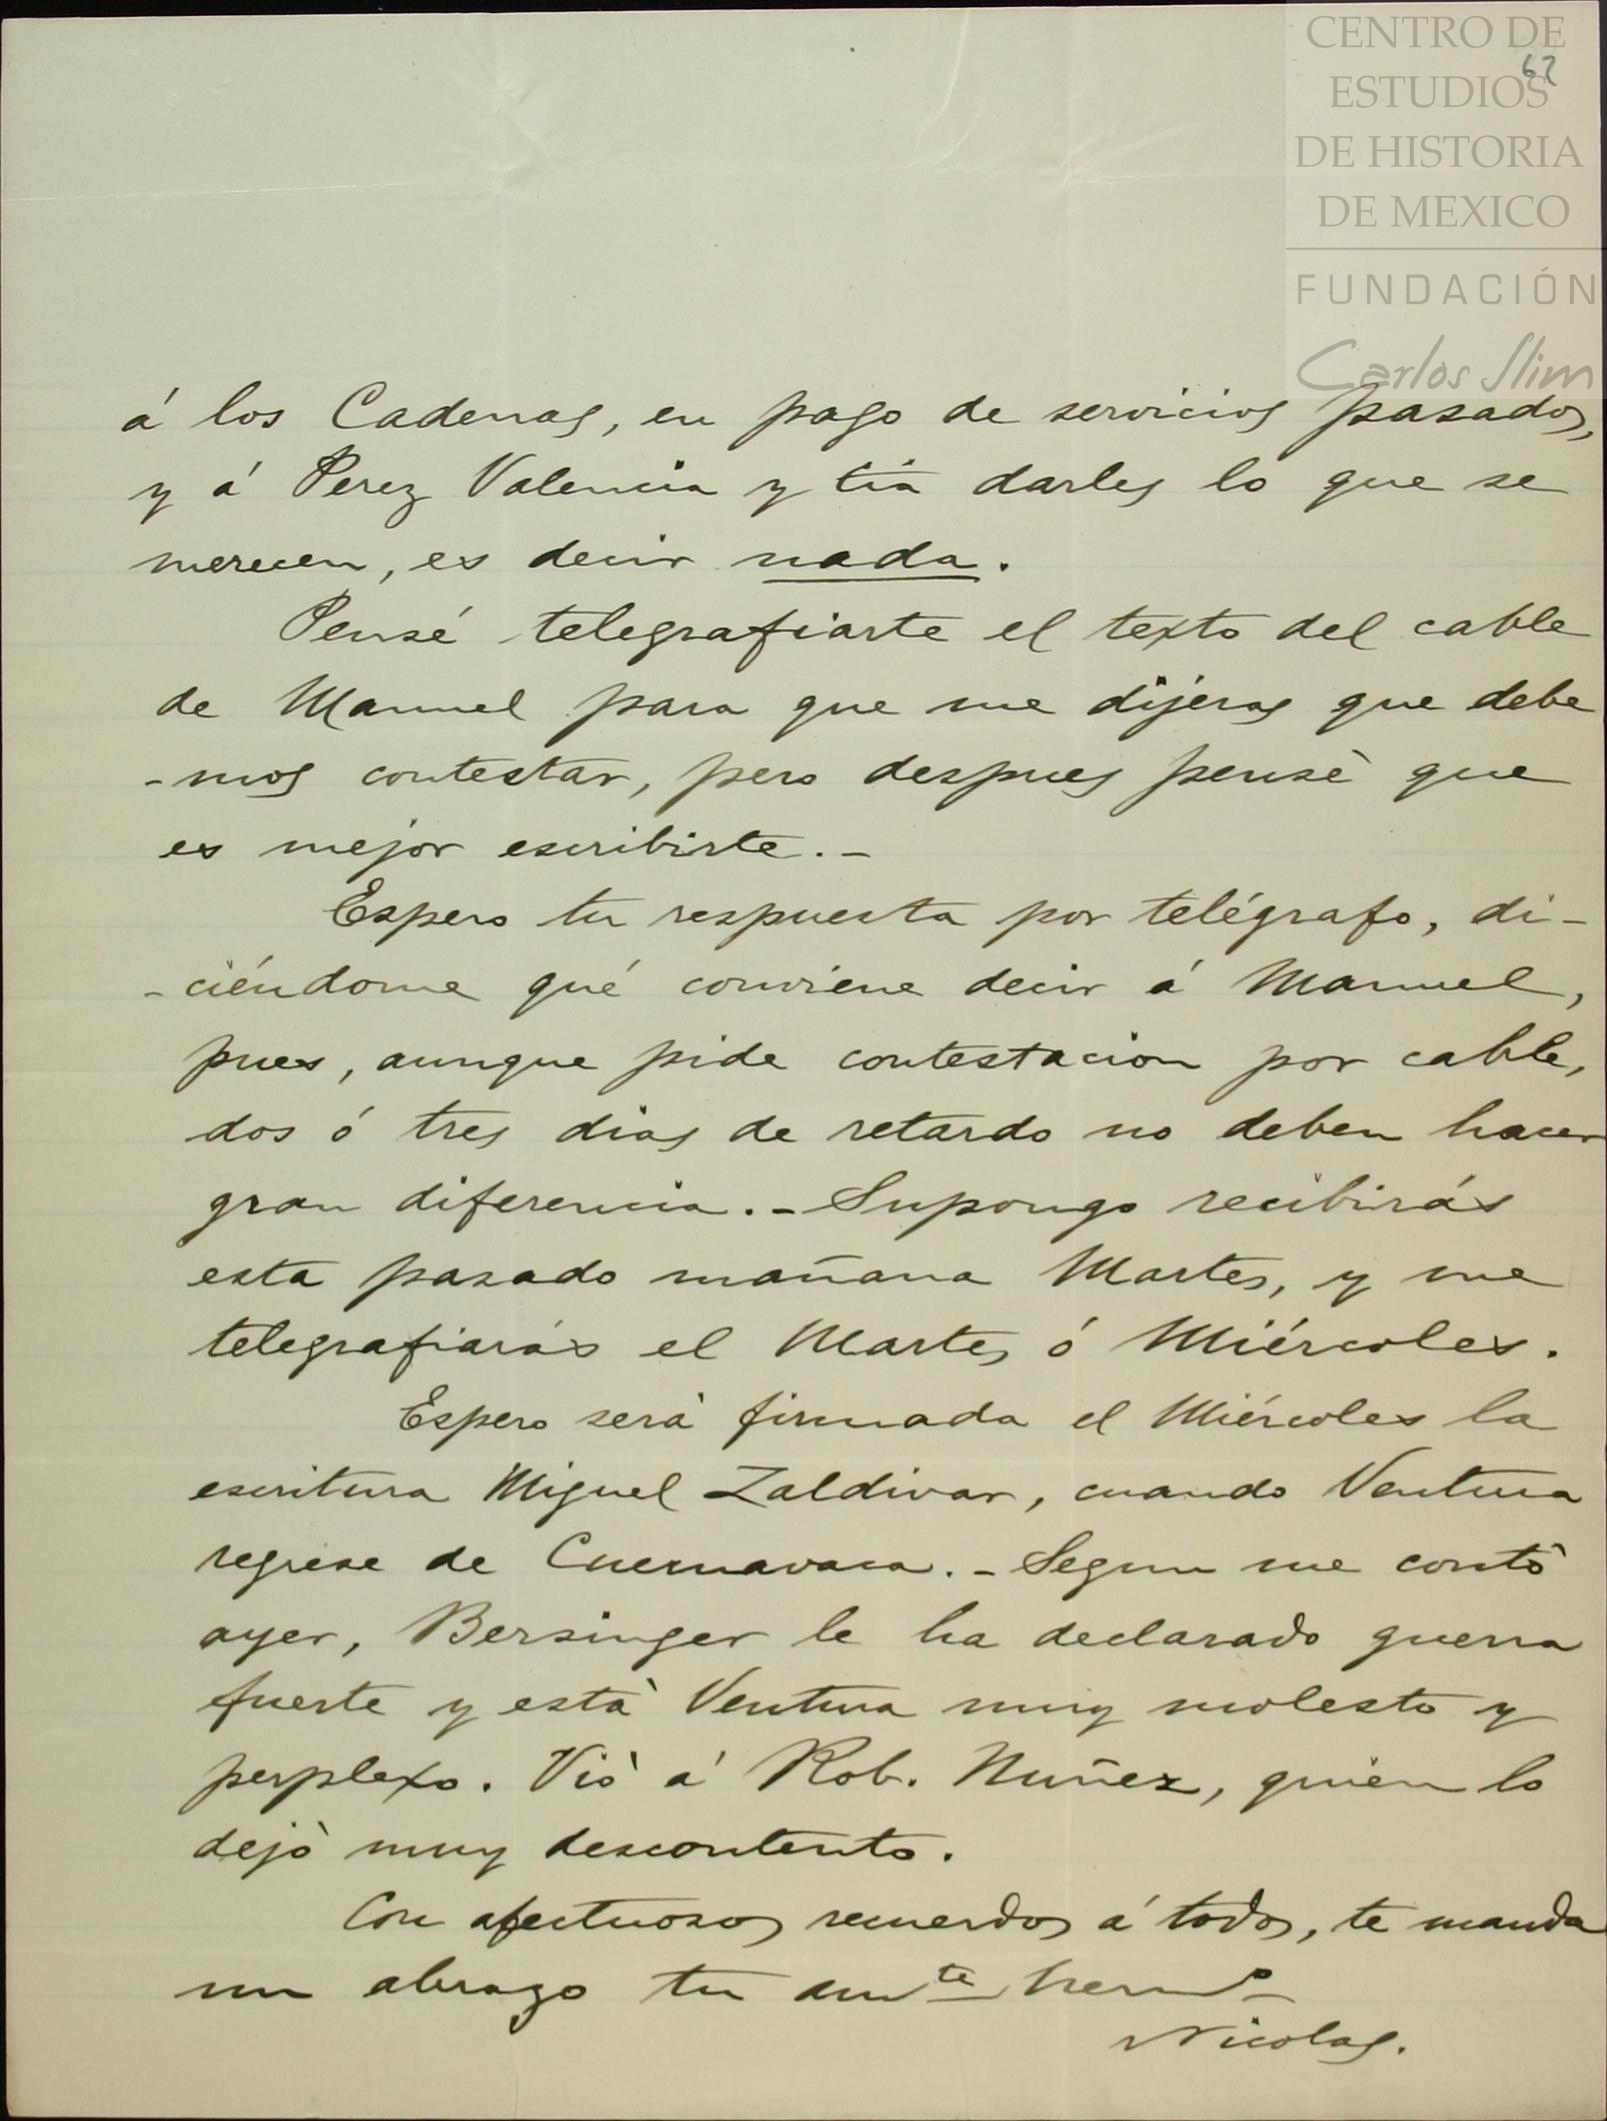 CENTRO DE
ESTUDIOS
DE HISTORIA
DE MEXICO
FUNDACIÓN
Carlos Slim
62
á los Cadenas, en pago de servicios pasados,
y á Perez Valencia y tia darles lo que se
merecen, es decir nada.
Pensé telegrafiarte el texto del cable
de Manuel para que me dijeras que debe
-mos contestar, pero despues pensè que
es mejor escribirte.-
Espero tu respuesta por telégrafo, di-
-ciéndome qué conviene decir á Manuel,
pues, aunque pide contestacion por cable,
dos ó tres dias de retardo no deben hacer
gran diferencia.- Supongo recibirás
esta pasado mañana Martes, y me
telegrafiarás el Martes ó Miércoles.
Espero serà firmada el Miércoles la
escritura Miguel Zaldivar, cuando Ventura
regrese de Cuernavaca.- Segun me contò
ayer, Bersinger le ha declarado guerra
fuerte y està Ventura muy molesto y
perplexo. Viò á Rob. Nuñez, quien lo
dejò muy descontento.
Con afectuosos recuerdos á todos, te manda
un abrazo tu amte hermo
Nicolas.